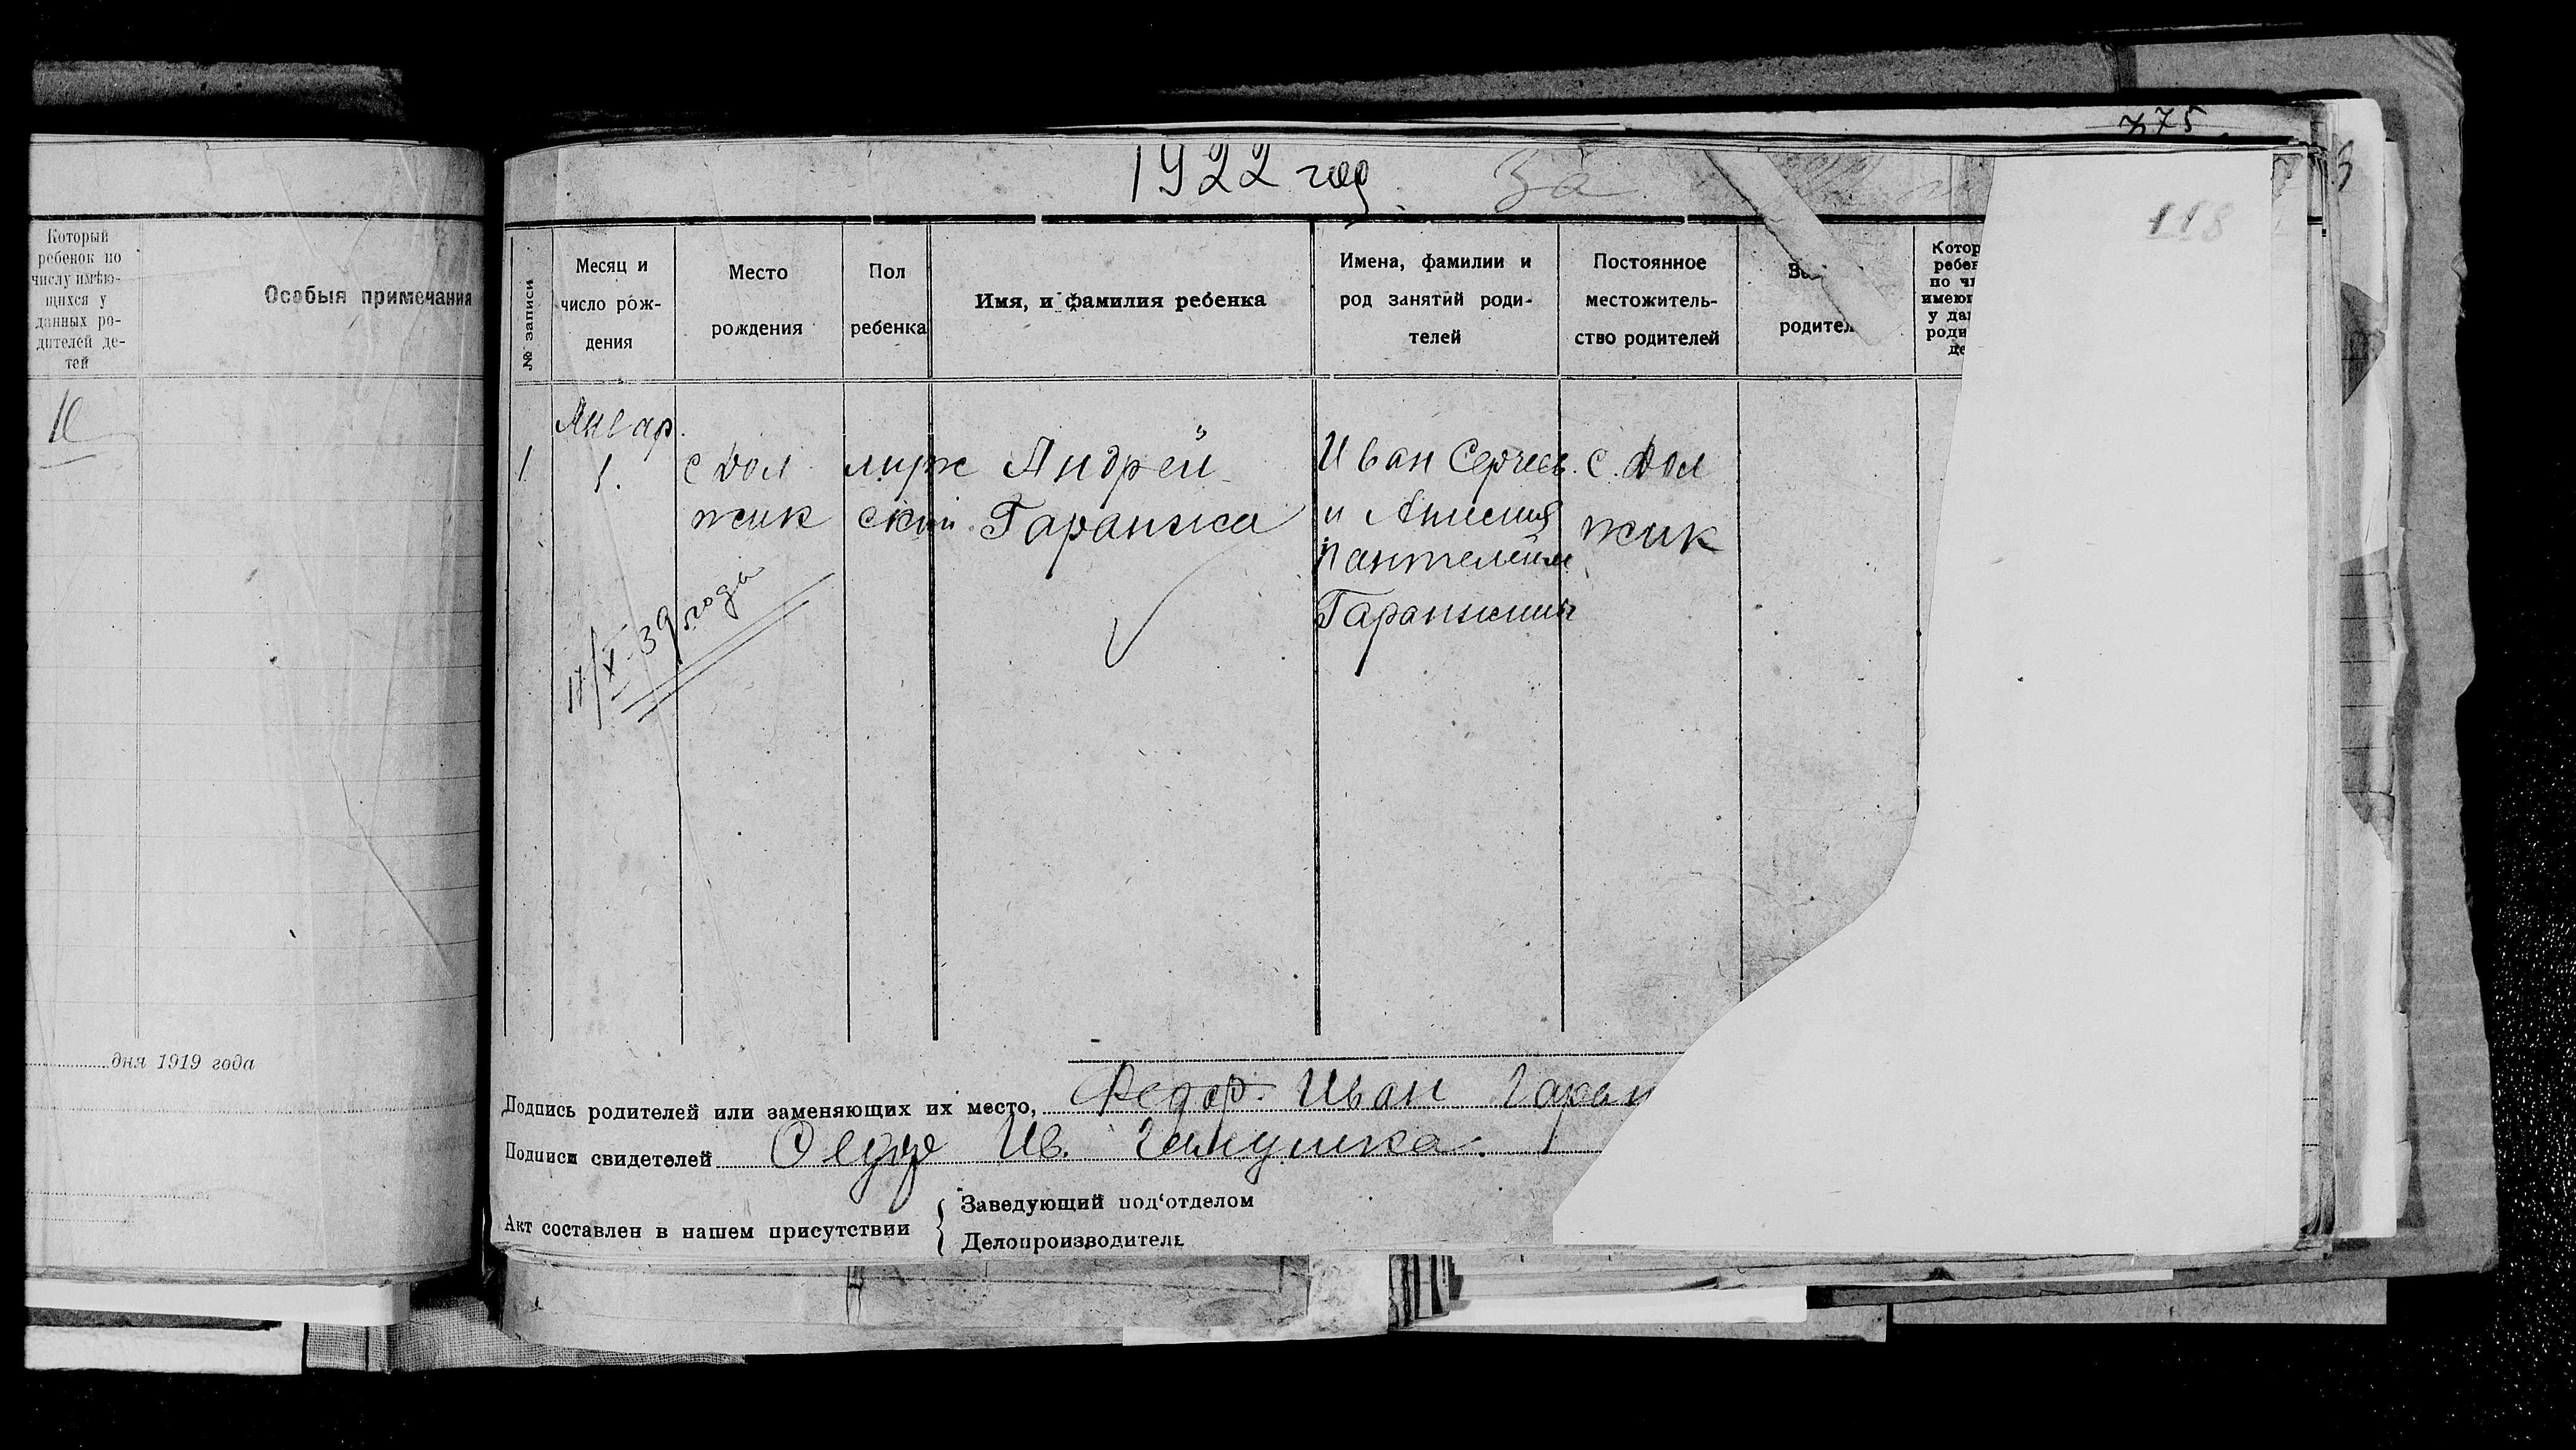 375
1922 год За
118
Который
ребенок по
числу имѣю-
щихся у
данных ро-
дителей де-
тей
Особыя примечания
10
дня 1919 года
№ записи
Месяц и
число рож-
дения
Место
рождения
Пол
ребенка
Имя, и фамилия ребенка
Имена, фамилии и
род занятий роди-
телей
Постоянное
местожитель-
ство родителей
родител
Котор
ребен
по чи
имеющ
у да
роди
де
1
Январ.
1.
с Дол
жик
муже
ский
Андрей
Гаранжа
Иван Сергеев.
и Анисия
Пантелейм
Гаранжины
с. Дол
жик
17/X-39 года
Подпись родителей или заменяющих их место, Федор Иван Гаран
Подписи свидетелей Ив.
Акт составлен в нашем присутствии
Заведующий под'отделом
Делопроизводитель